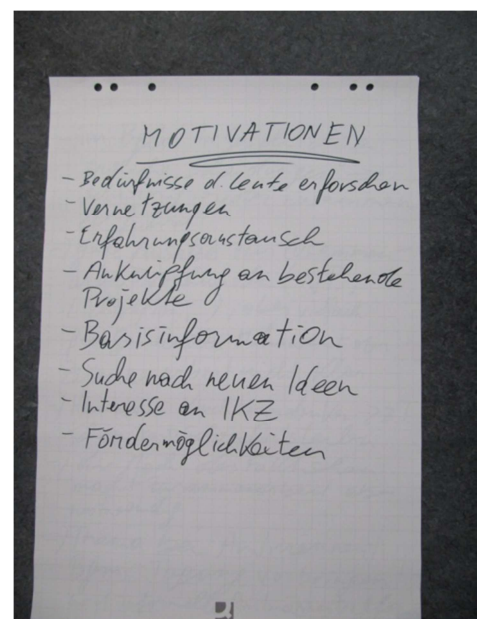 MOTIVATIONEN
- Bedürfnisse d. Leute erforschen
- Vernetzungen
- Erfahrungsaustausch
- Anknüpfung an bestehende
Projekte
- Basisinformation
- Suche nach neuen Ideen
- Interesse an IKZ
- Fördermöglichkeiten